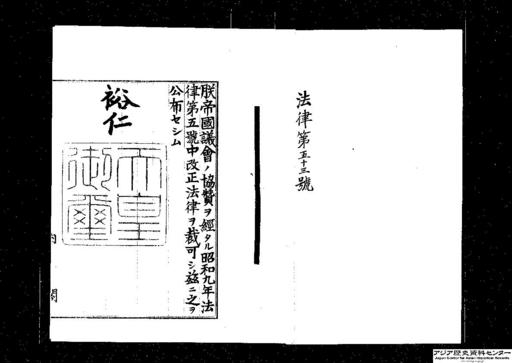 法律第五十三號
朕帝國議會ノ協贊ヲ經タル昭和九年法
律第五號中改正法律ヲ裁可シ茲ニ之ヲ
公布セシム
裕仁
天皇
御璽
内閣
アジア歴史資料センター
Japan Center for Asian Historical Records